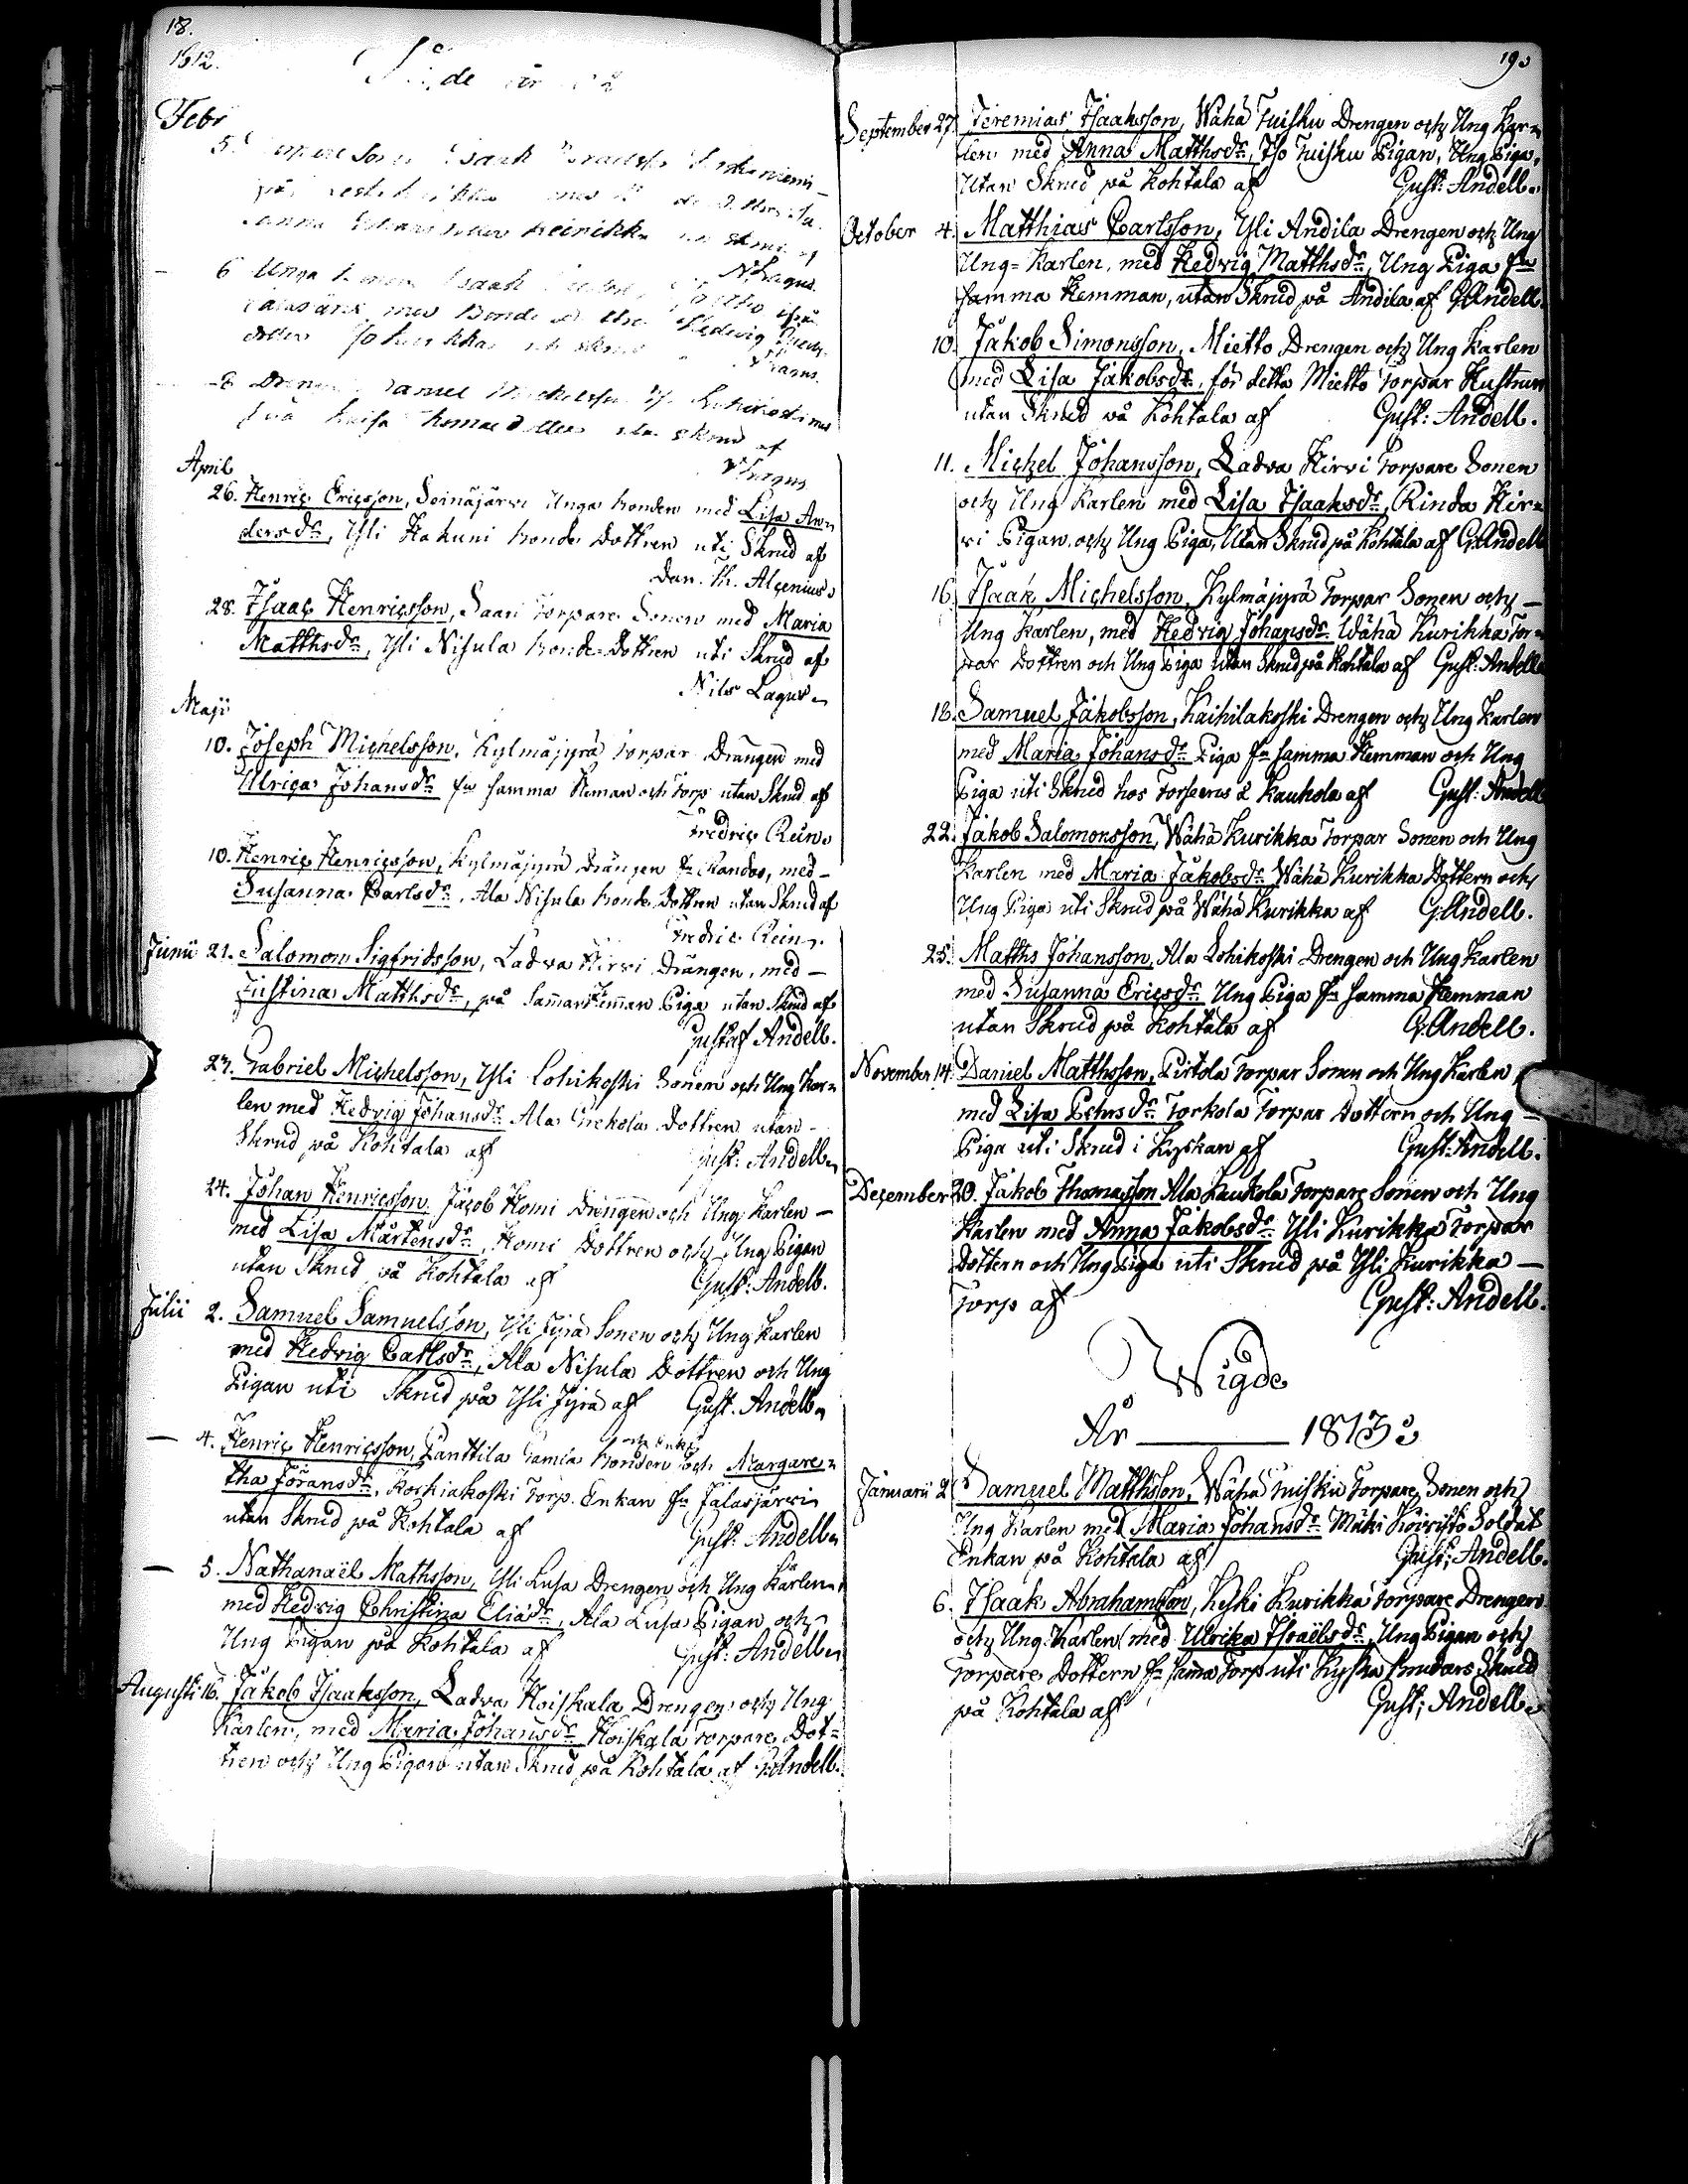 18.
1812.
Febr
5.
med
Sanna Heinrikka
N. Lagus.
6 Unga Isaak
med Bonde Hedvig
dotter skrud
8 Drengen Daniel Michelsson
Lovisa Thomædotter utan skrud af
N Lagus
April
26. Henric Ericsson, Seinäjärvi Unga bonden med Lisa An=
dersdr, Yli Hakuni bonde Dottren uti Skrud af
Dan. H. Alcenius.
28. Isaac Henricsson, Saari Torpare Sonen med Maria
Matthsdr, Yli Nisula bonde Dottren uti Skrud af
Nils Lagus.
Maji
10. Joseph Michelsson, Kylmäjyrä torpar Drängen med
Ulrica Johansdr fr samma Heman och Torp utan Skrud af
Fredric Rein.
10. Henric Henricsson, Kylmäjyrä Drängen fr Randas, med –
Susanna Carlsdr, Ala Nisula bonde Dottren utan Skrud af
Fredric Rein.
Junii 21. Salomom Sigfridsson, Ladva Hirvi Drängen, med –
Justina Matthsdr, på Samma Hemman Piga utan Skrud af
Gustaf Andell.
23. Gabriel Michelsson, Yli Lohikoski Sonen och Ung Kar=
len med Hedvig Johansdr Ala Dottren utan –
Skrud på Kohtala af Gust: Andell.
24. Johan Henricsson, Jacob Homi Drengen och Ung Karlen –
med Lisa Mårtensdr, Homi Dottren och Ung Pigan
utan Skrud på Kohtala af Gust: Andell.
Julii 2. Samuel Samuelsson, Yli Jyrä Sonen och Ung Karlen
med Hedvig Carlsdr, Ala Nisula Dottren och Ung
Pigan uti Skrud på Yli Jyrä af Gust. Andell.
och Enkl:
— 4. Henric Henricsson, Panttila Gamla bonden och Margare=
tha Jöransdr, Korkiakoski Torp. Enkan fr Jalasjärvi
utan Skrud på Kohtala af Gust: Andell.
— 5. Nathanaël Mathsson, Yli Lusa Drengen och Ung Karlen
med Hedvig Christina Eliædr, Ala Lusa Pigan och
Ung Pigan på Kohtala af Gust: Andell.
Augusti 16. Jakob Isaaksson, Ladva Koiskala Drengen och Ung
Karlen, med Maria Johansdr Koiskala torpare Dot=
tren och Ung Pigan utan Skrud på Kohtala af G. Andell.
19.
September 27. Jeremias Isaaksson, Wähä Tuisku Drengen och Ung Kar=
len med Anna Matthsdr, Iso Tuisku Pigan, Ung Piga,
Utan Skrud på Kohtala af Gust: Andell.
October 4. Matthias Carlsson, Yli Andila Drengen och Ung
Ung=Karlen, med Hedvig Matthsdr, Ung Piga fr
samma Hemman, utan Skrud på Andila af G. Andell.
10. Jakob Simonsson, Mietto Drengen och Ung Karlen
med Lisa Jakobsdr, för detta Mietto Torpar Hustrun
utan Skrud på Kohtala af Gust: Andell.
11. Michel Johansson, Ladva Hirvi Torpare Sonen
och Ung Karlen med Lisa Isaaksdr, Rinda Hir=
vi Pigan och Ung Piga, Utan Skrud på Kohtala af G. Andell
16. Isaak Michelsson, Kylmäjyrä Torpar Sonen och –
Ung Karlen, med Hedvig Johansdr Wähä Kurikka Tor=
par Dottren och Ung Piga utan Skrud på Kohtala af Gust: Andell
18. Samuel Jakobsson, Kaihilakoski Drengen och Ung Karlen
med Maria Johansdr Piga fr samma Hemman och Ung
Piga uti Skrud hos Torseerus å Kaukola af Gust: Andell
22. Jakob Salomonsson, Wähä Kurikka Torpar Sonen och Ung
Karlen med Maria Jakobsdr Wähä Kurikka Dottern och
Ung Piga uti Skrud på Wähä Kurikka af G. Andell.
25. Matths Johansson, Ala Lohikoski Drengen och Ung Karlen
med Susanna Ericsdr Ung Piga fr samma Hemman
utan Skrud på Kohtala af G. Andell.
November 14. Daniel Matthsson, Pirtola Torpar Sonen och Ung Karlen
med Lisa Pehrsdr Torkola Torpar Dottern och Ung –
Piga uti Skrud i Kyrkan af Gust: Andell.
December 20. Jakob Thomasson Ala Kaukola Torpare Sonen och Ung
Karlen med Anna Jakobsdr Yli Kurikka Torpar
Dottern och Ung Piga uti Skrud på Yli Kurikka —
Torp af Gust: Andell.
Wigde
År — 1813.
Januarii 2. Samuel Matthsson, Wähä Tuisku Torpare Sonen och
Ung Karlen med Maria Johansdr Mäki Koivisto Soldat
Enkan på Kohtala af Gust: Andell.
6. Isaak Abrahamsson, Keski Kurikka Torpare Drengen
och Ung Karlen med Ulrika Israelsdr, Ung Pigan och
Torpare Dottern fr sama Torp uti Kyrko brudars Skrud
på Kohtala af Gust: Andell.